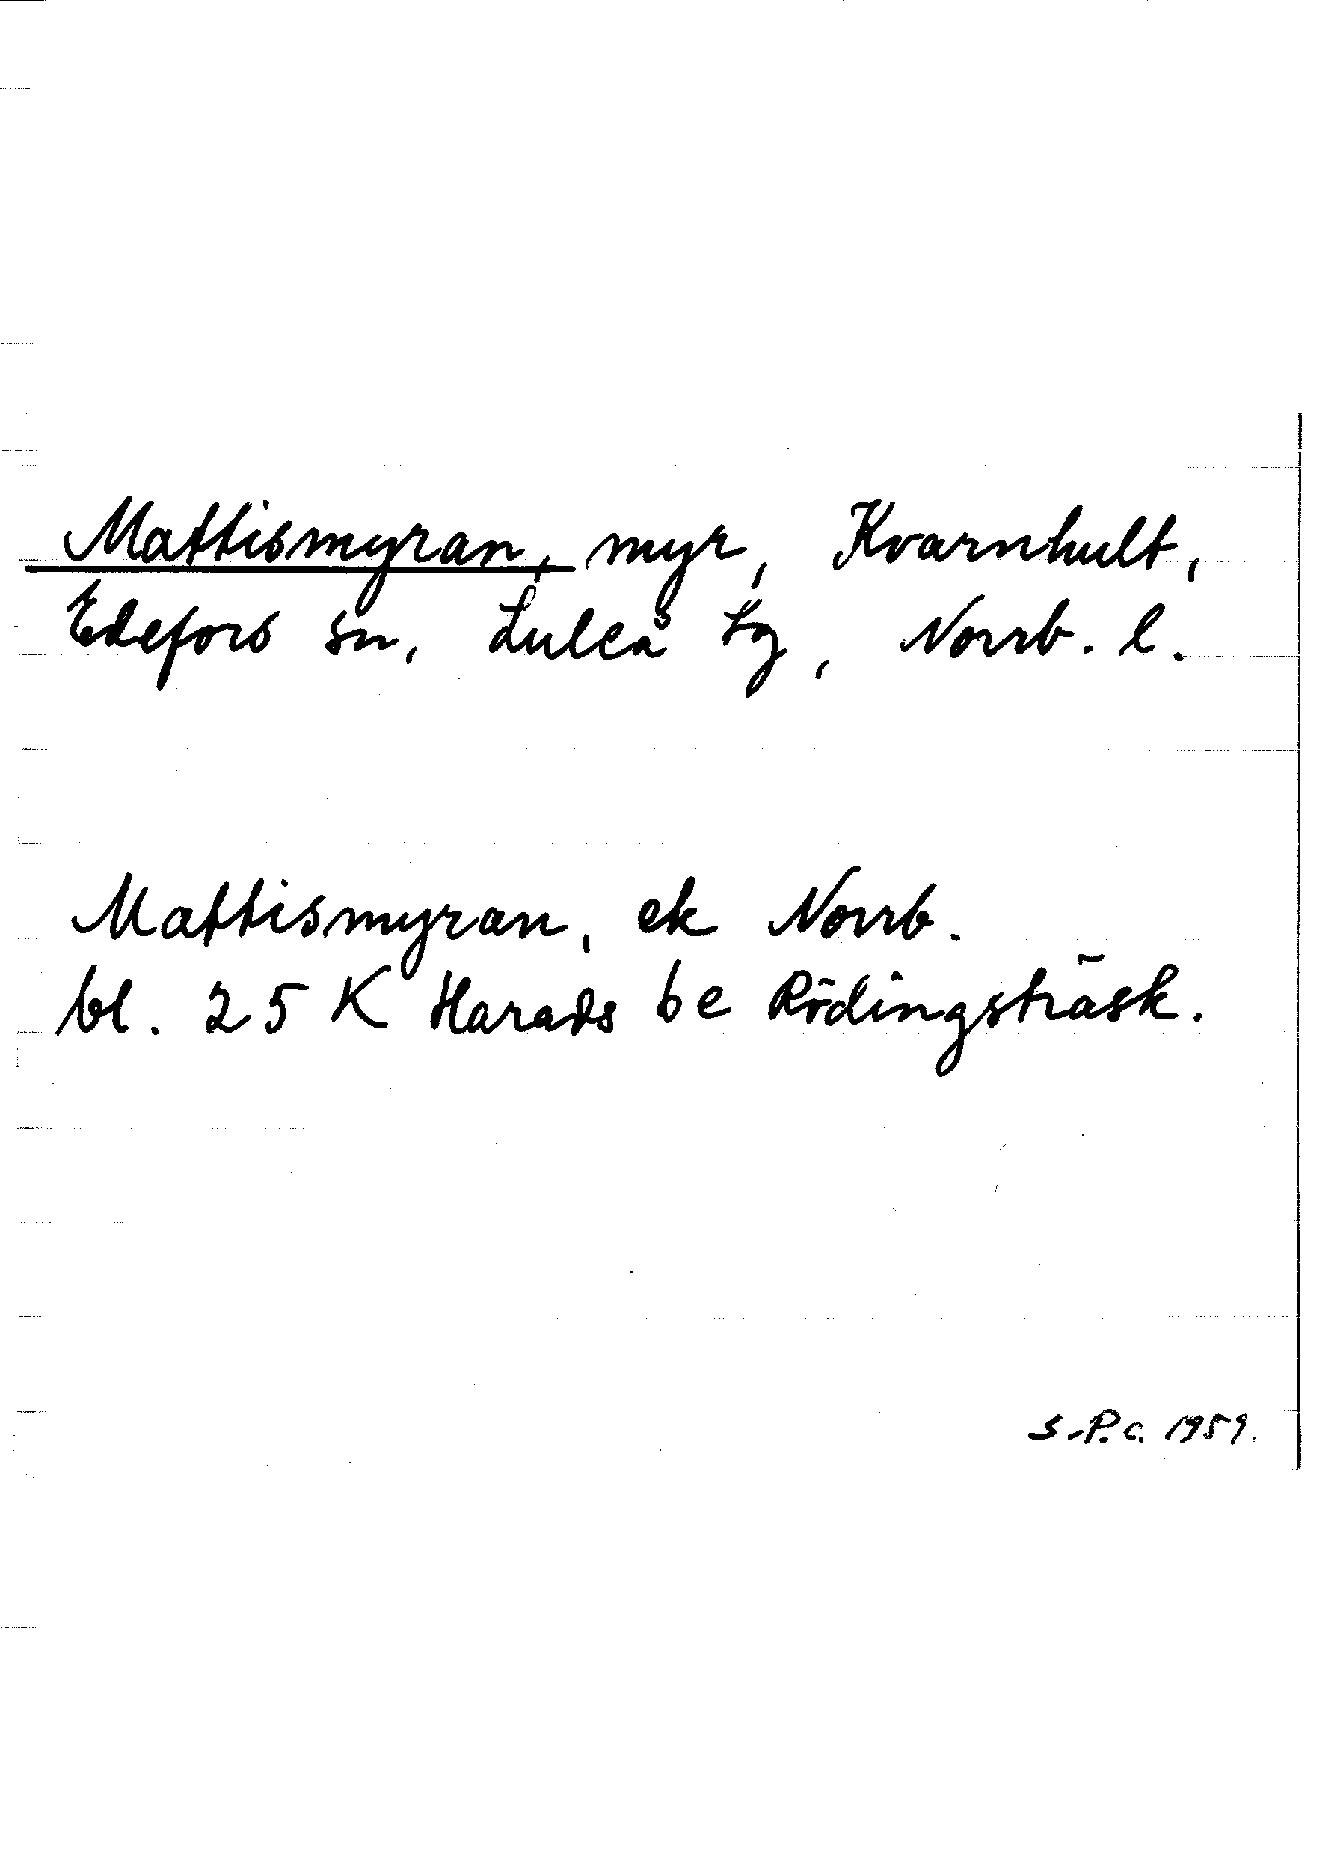 Mattismyran, myr, Kvarnhult,
Edefors sn, Luleå tg, Norrb. l.
Mattismyran, ek Norrb.
bl. 25 K Harads 6 e Rödingsträsk.
S-P.c. 1959.